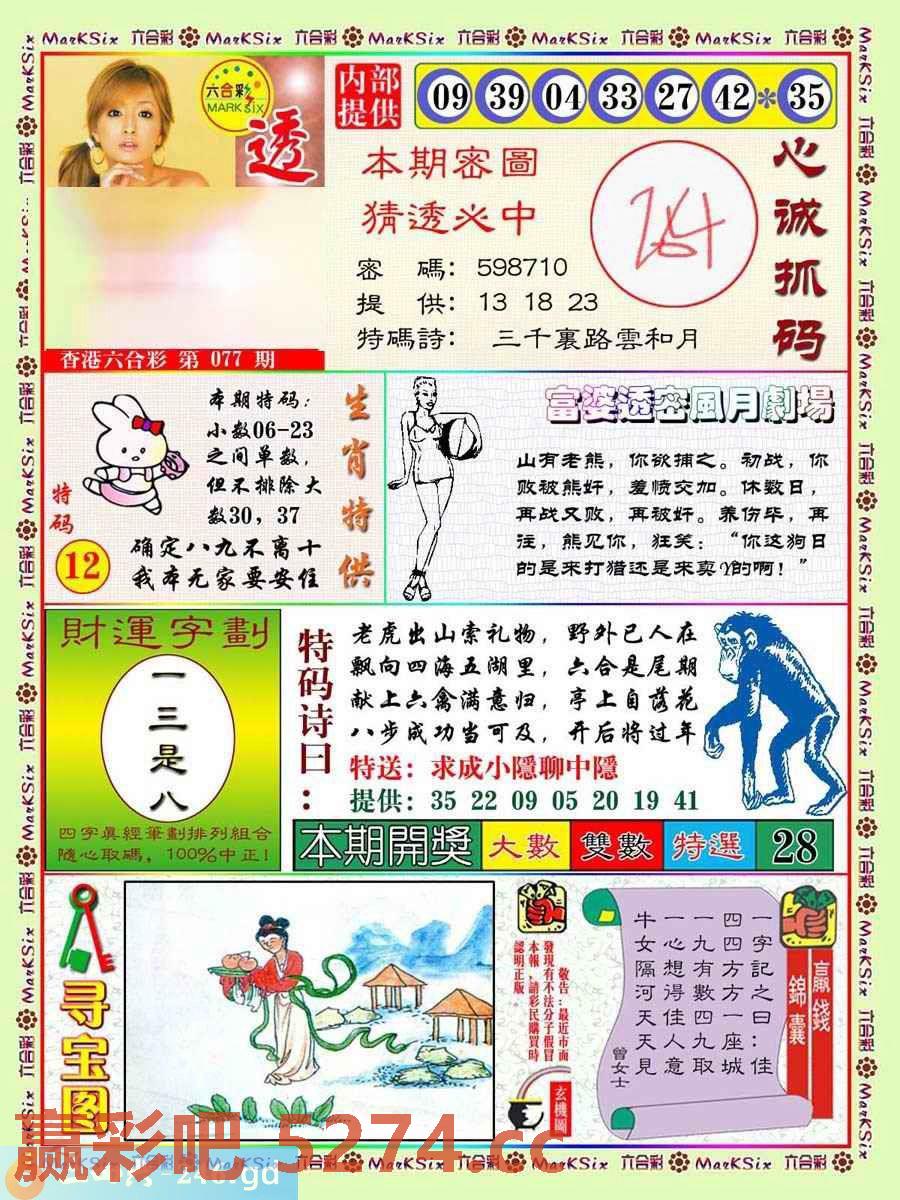 MarKSix 六合彩 MarKSix 六合彩 MarKSix 六合彩 MarKSix 六合彩 MarKSix 六合彩
六合彩
MARK SIX
透
内部
提供
09 39 04 33 27 42 * 35
本期密圖
猜透必中
264
密 碼: 598710
提 供: 13 18 23
特碼詩: 三千裏路雲和月
心诚抓码
香港六合彩 第 077 期
本期特码:
小数06-23
之间单数,
但不排除大
数30, 37
确定八九不离十
我本无家要安住
特码
12
生肖特供
富婆透密風月劇場
山有老熊，你欲捕之。初战，你
败被熊奸，羞愤交加。休数日，
再战又败，再被奸。养伤毕，再
往，熊见你，狂笑：“你这狗日
的是来打猎还是来卖Y的啊！”
財運字劃
一
三
是
八
四字眞經筆劃排列組合
隨心取碼, 100%中正!
特码诗曰:
老虎出山索礼物, 野外已人在
飘向四海五湖里, 六合是尾期
献上六禽满意归, 亭上自落花
八步成功当可及, 开后将过年
特送: 求成小隱聊中隱
提供: 35 22 09 05 20 19 41
本期開獎 大數 雙數 特選 28
寻宝图
敬告:最近市面
發現有不法分子假冒
本報,請彩民購買時
認明正版。
玄機圖
一字記之曰:佳
四四方方一座城
一九有數四九取
一心想得佳人意
牛女隔河天天見
曾女士
贏錢
錦囊
赢彩吧 5274.cc
MarKSix 六合彩 MarKSix 六合彩 MarKSix 六合彩